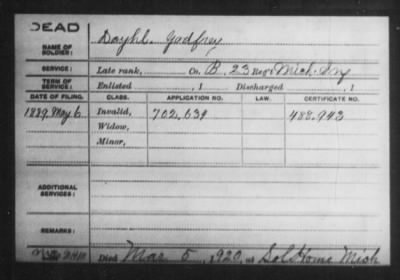 DEAD
NAME OF SOLDIER: Dayhl. Godfrey
SERVICE: Late rank, Co. B, 23 Reg't Mich. Inf
TERM OF SERVICE: Enlisted , 1 Discharged , 1
DATE OF FILING. CLASS. APPLICATION NO. LAW. CERTIFICATE NO.
1889, May 6 Invalid, 702,639 488,943
Widow,
Minor,
ADDITIONAL SERVICES:
REMARKS:
Died Mar 5, 1920, at Sol Home Mich